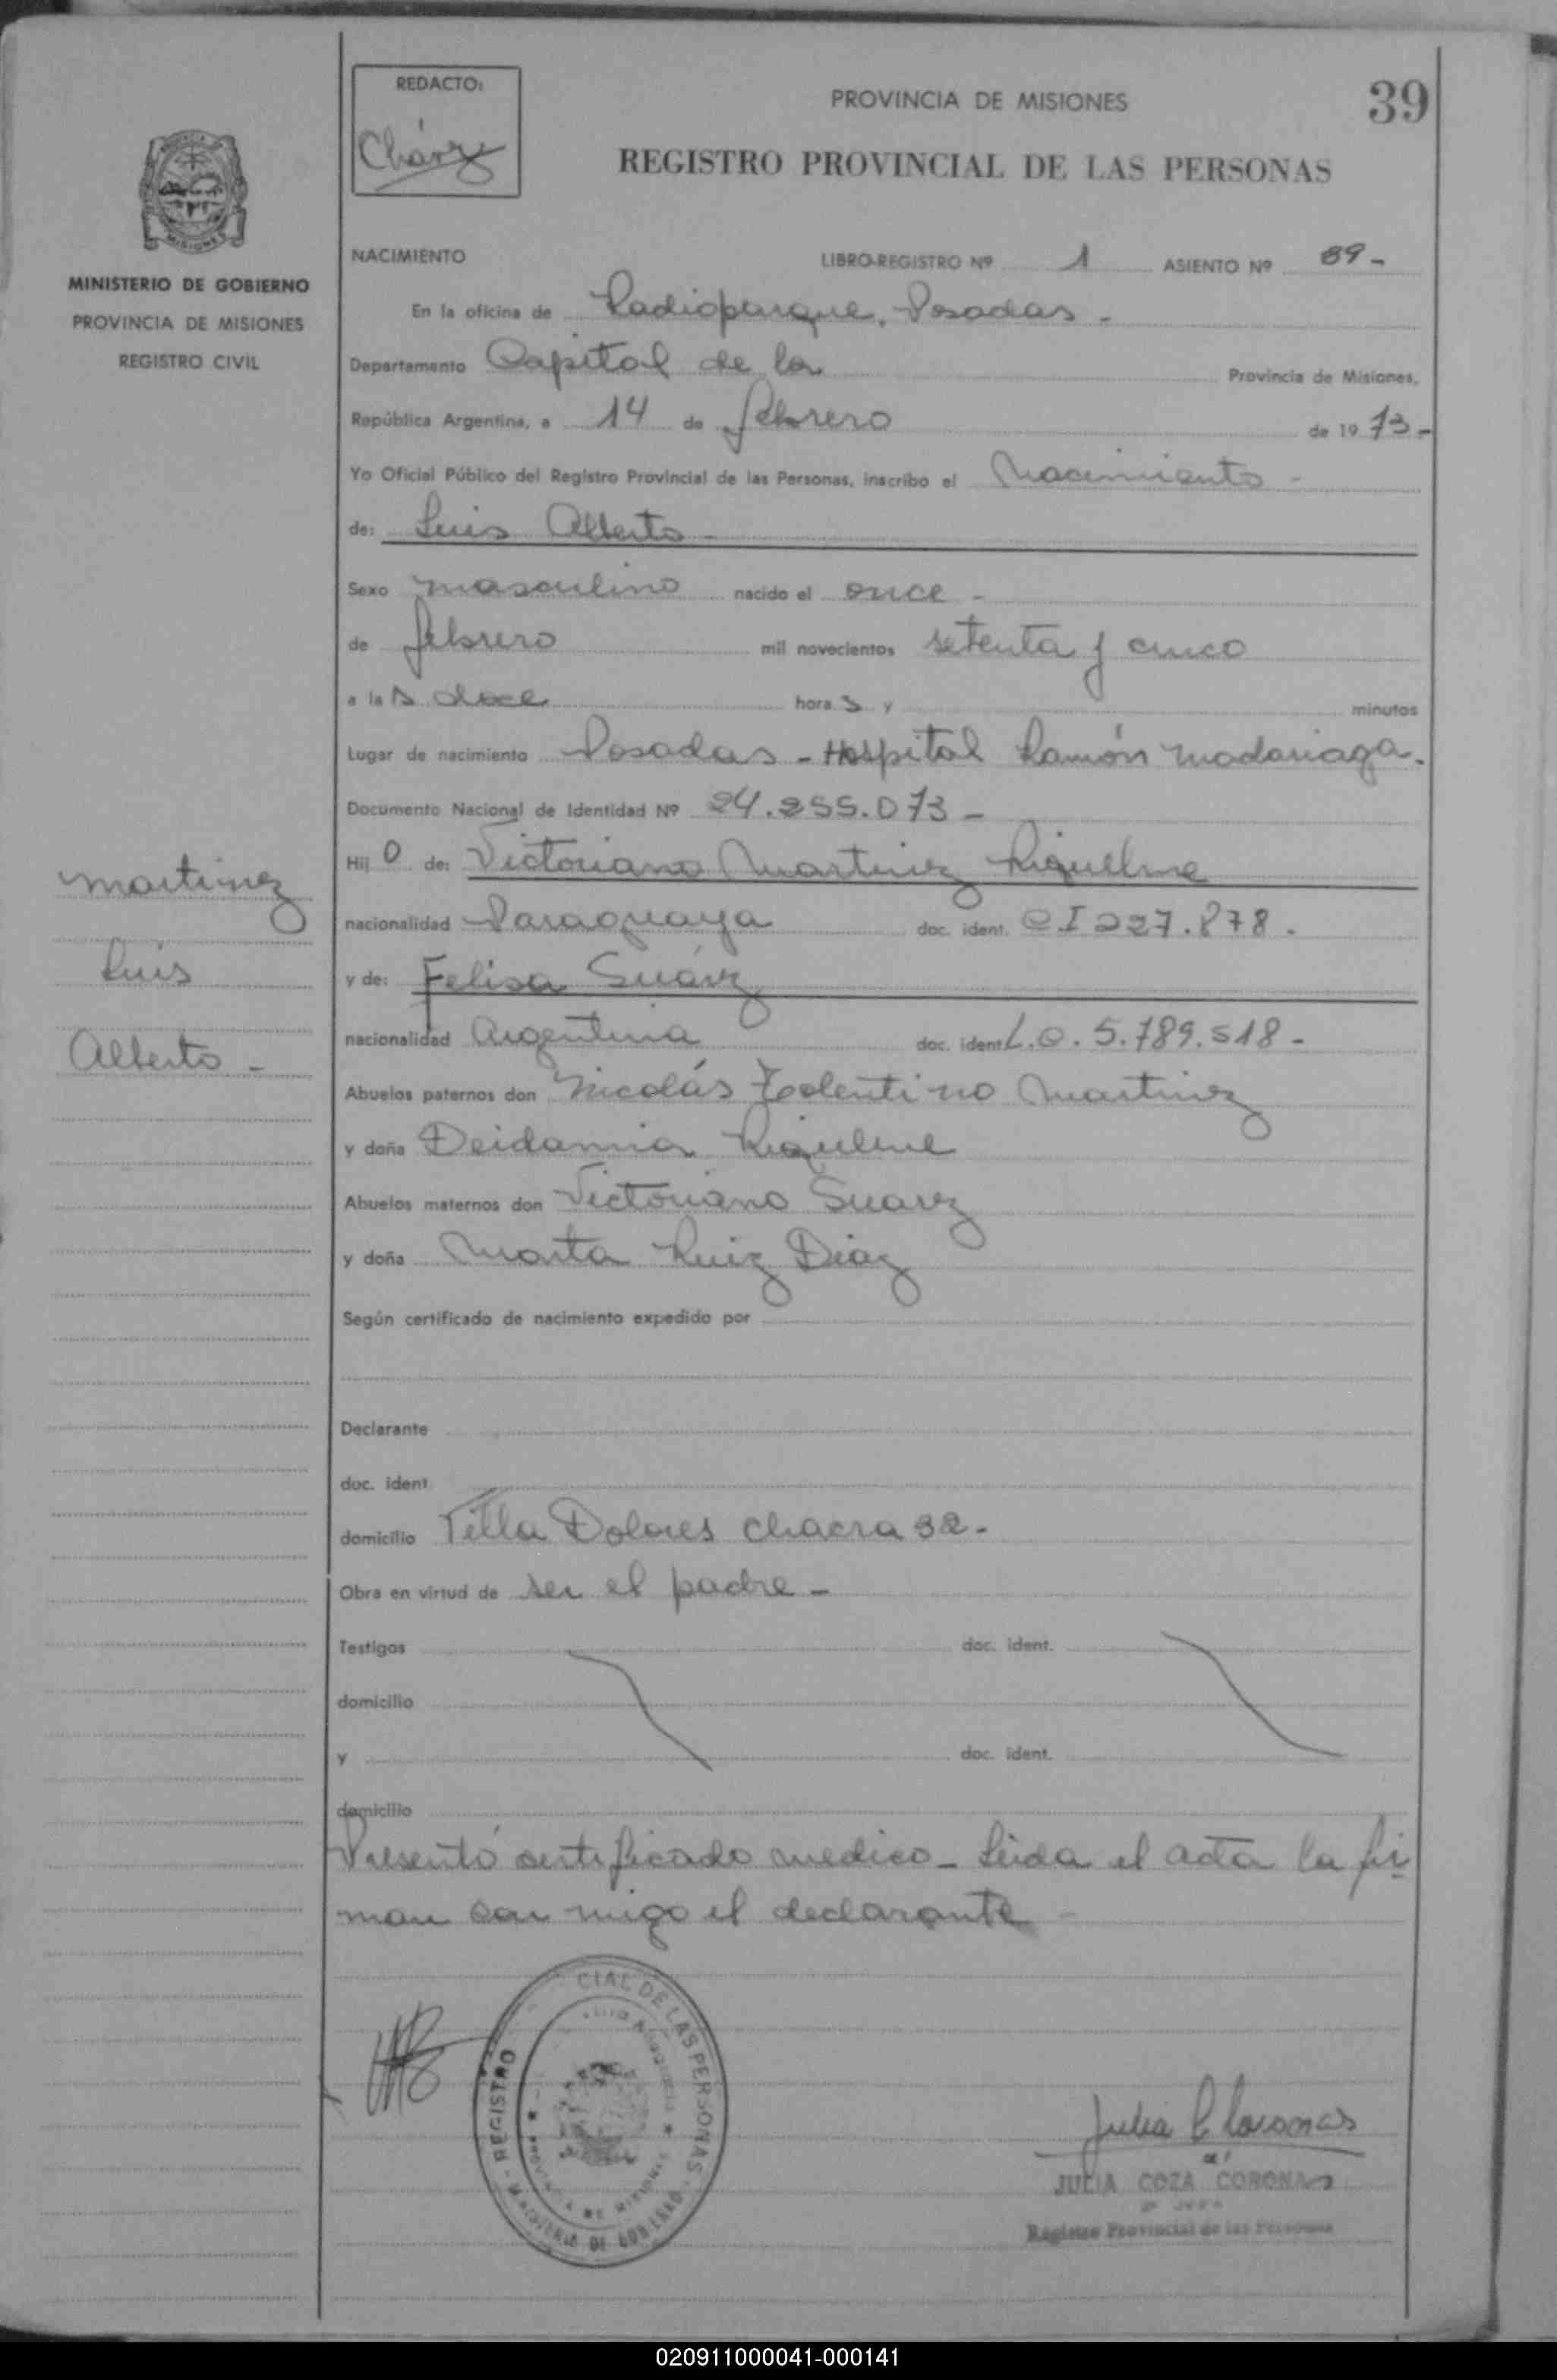 REDACTO:
Chávez
PROVINCIA DE MISIONES
39
REGISTRO PROVINCIAL DE LAS PERSONAS
MISIONES
MINISTERIO DE GOBIERNO
PROVINCIA DE MISIONES
REGISTRO CIVIL
NACIMIENTO LIBRO-REGISTRO Nº 1 ASIENTO Nº 89-
En la oficina de Radioparque, Posadas -
Departamento Capital de la Provincia de Misiones,
República Argentina, a 14 de febrero de 19 73-
Yo Oficial Público del Registro Provincial de las Personas, inscribo el Nacimiento -
de: Luis Alberto -
Sexo masculino nacido el once -
de febrero mil novecientos setenta y cinco
a las doce horas y minutos
Lugar de nacimiento Posadas - Hospital Ramón Madariaga.
Documento Nacional de Identidad Nº 24.255.073 -
Hijo de: Victoriano Martinez Riquelme
nacionalidad Paraguaya doc. ident. CI 227.878.
y de: Felisa Suárez
nacionalidad Argentina doc. ident. L.C. 5.789.518 -
Abuelos paternos don Nicolás Tolentino Martinez
y doña Deidamia Riquelme
Abuelos maternos don Victoriano Suarez
y doña Marta Ruiz Diaz
Según certificado de nacimiento expedido por
Declarante
doc. ident
domicilio Villa Dolores Chacra 32.
Obra en virtud de ser el padre -
Testigos doc. ident.
domicilio
y doc. ident.
domicilio
Presentó sertificado medico - Leida el acta la fir
man con migo el declarante -
Martinez
Luis
Alberto -
REGISTRO CIAL DE LAS PERSONAS
MINISTERIO DE GOBIERNO
Julia C Coronas
JULIA COZA CORONAS
Registro Provincial de las Personas
020911000041-000141